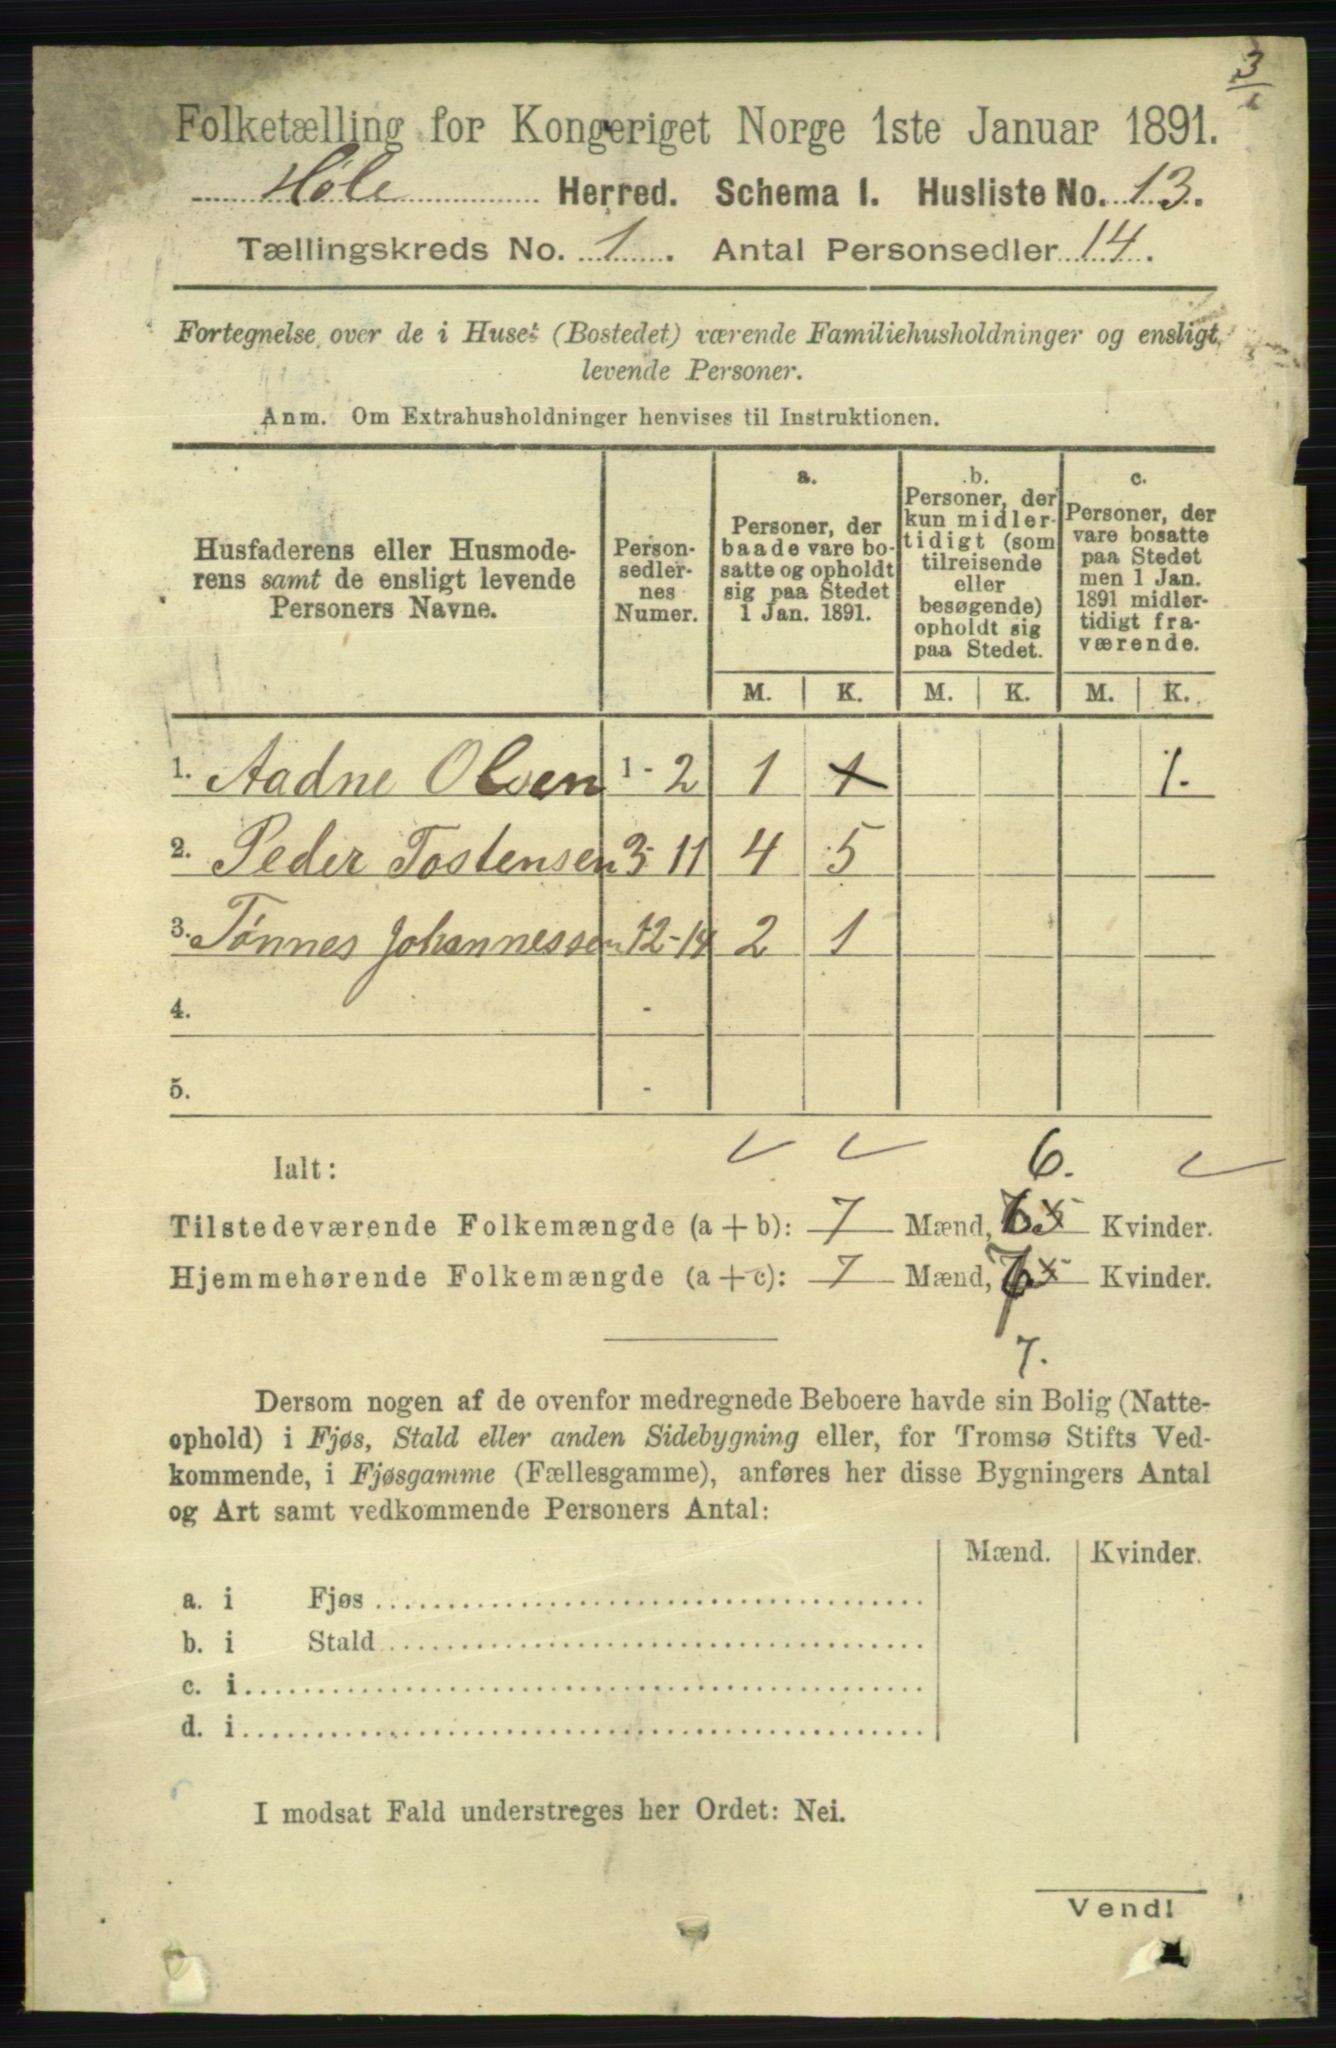 3
1
Folketælling for Kongeriget Norge 1ste Januar 1891.
Høle Herred. Schema 1. Husliste No. 13.
Tællingskreds No. 1. Antal Personsedler 14.
Fortegnelse over de i Huset (Bostedet) værende Familiehusholdninger og ensligt
levende Personer.
Anm. Om Extrahusholdninger henvises til Instruktionen.
Husfaderens eller Husmode-
rens samt de ensligt levende
Personers Navne.
Person-
sedler-
nes
Numer.
a.
Personer, der
baade vare bo-
satte og opholdt
sig paa Stedet
1 Jan. 1891.
b.
Personer, der
kun midler-
tidigt (som
tilreisende
eller
besøgende)
opholdt sig
paa Stedet.
c.
Personer, der
vare bosatte
paa Stedet
men 1 Jan.
1891 midler-
tidigt fra-
værende.
M. K. M. K. M. K.
1. Aadne Olsen 1 - 2 1 1 1.
2. Peder Tostensen 3 - 11 4 5
3. Tønnes Johannessen 12 - 14 2 1
4. -
5. -
Ialt: 6.
Tilstedeværende Folkemængde (a + b): 7 Mænd, Kvinder.
Hjemmehørende Folkemængde (a + c): 7 Mænd, Kvinder.
7.
Dersom nogen af de ovenfor medregnede Beboere havde sin Bolig (Natte-
ophold) i Fjøs, Stald eller anden Sidebygning eller, for Tromsø Stifts Ved-
kommende, i Fjøsgamme (Fællesgamme), anføres her disse Bygningers Antal
og Art samt vedkommende Personers Antal:
Mænd. Kvinder.
a. i Fjøs
b. i Stald
c. i
d. i
I modsat Fald understreges her Ordet: Nei.
Vend!